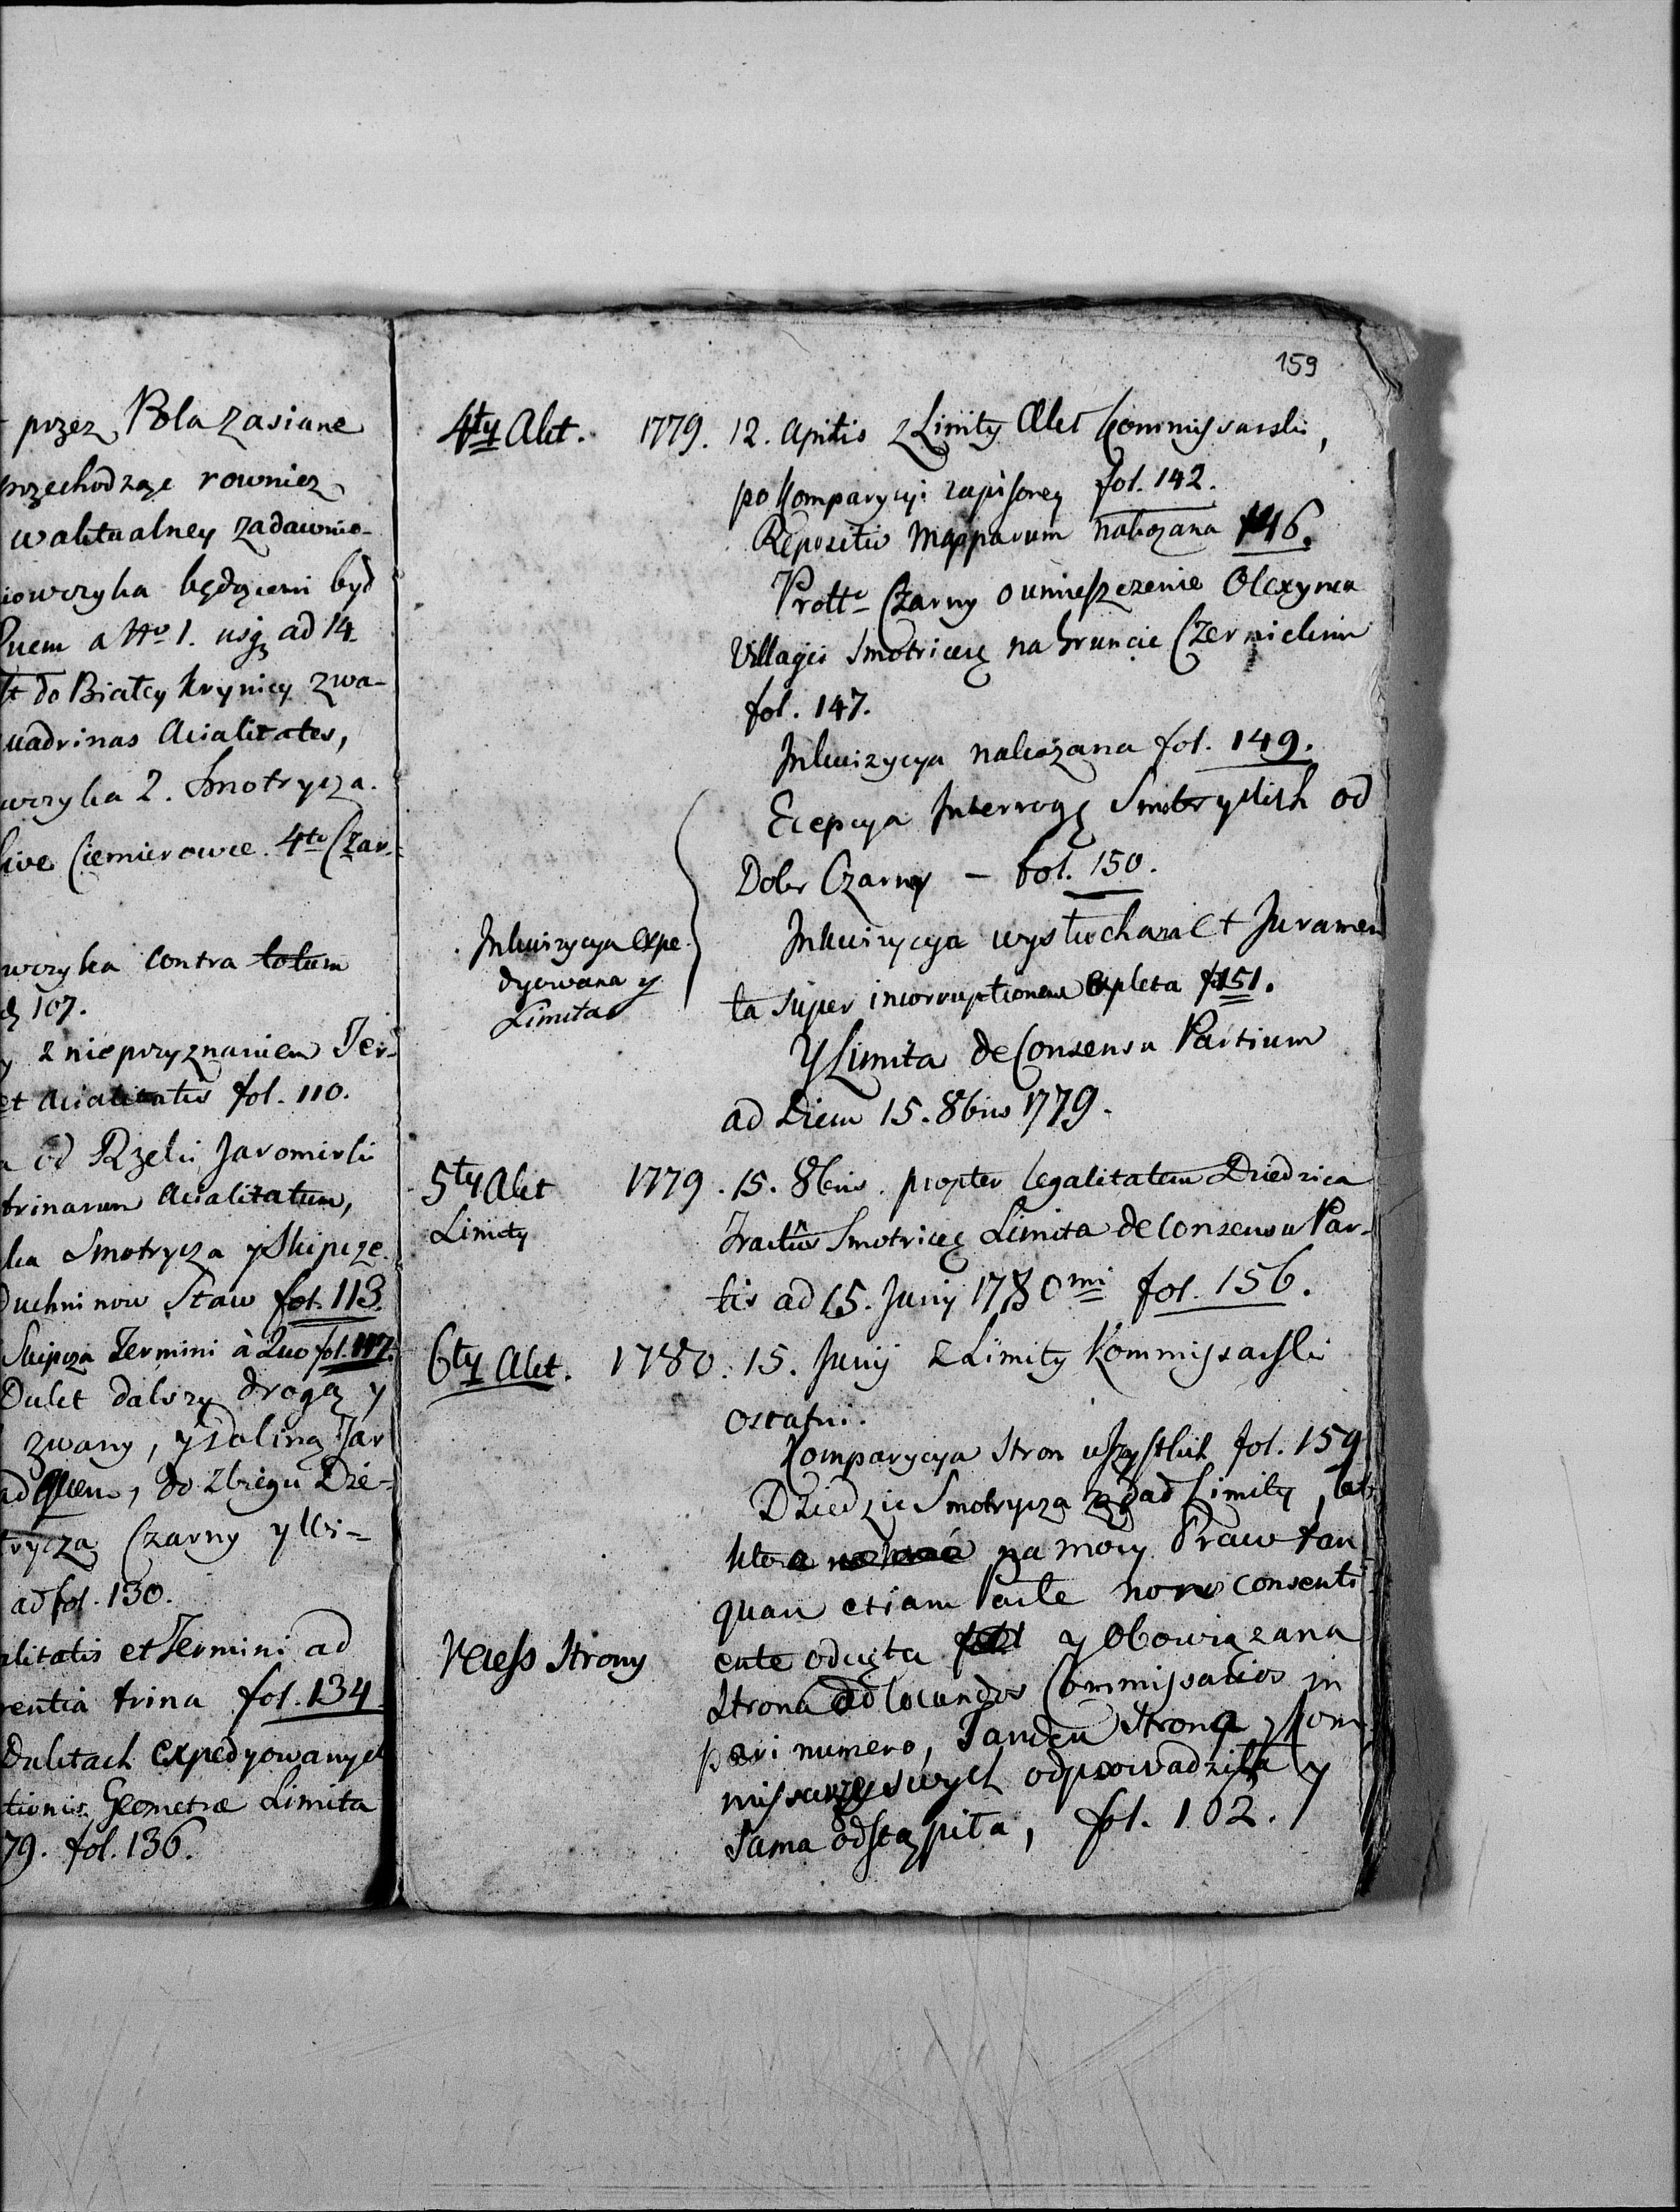 przez Pola zasiane
przechodzące rowniez
waktualney zadawnio-
iowczyka będącemi być
Quem a Nro 1. usq ad 14
do Białey Krynicy zwa-
uadrinas Acialitates,
wczyka 2. Smotrycza.
Ciemierowce. 4to Czar-
wczyka contra totum
107.
z nieprzyznaniem Ter-
et Acialitatis fol. 110.
od Rzeki Jaromirki
trinarum Acialitatum,
ka Smotrycza y Skipcze
Duchninow Staw fol. 113.
Skipcza Termini à Quo fol. 117.
Dukt dalszy drogą y
zwany, y doliną Jar
ad Quem, do zbiegu Dzie-
trycza Czarny y Wi-
ad fol. 130.
alitatis et Termini ad
rentia trina fol. 134
Duktach expedyowanych
tionis Geometræ Limita
79. fol. 136.
159
4ty Akt. 1779. 12. Aprilis z Limity Akt Kommissarski,
po Komparycyi zapisoney fol. 142.
Repositio Mapparum nakazana 146.
Protto Czarny o umieszczenie Olexyna
Villagii Smotricensis na Gruncie Czernieckim
fol. 147.
Inkwizycya nakazana fol. 149.
Excepcya Interrog Smotryckich od
Dobr Czarny – fol. 150.
Inkwizycya expe-
dyowana y
Limita
Inkwizycya wysłuchana et Juramen
ta super incorruptionem expleta f 151.
Y Limita de Consensu Partium
ad Diem 15. 8bris 1779.
5ty Akt 1779. 15. 8bris. propter legalitatem Dziedzica
Limity
Tractus Smotricensis Limita de Consensu Par-
tis ad 15. Junij 1780mi fol. 156.
6ty Akt. 1780. 15. Junij z Limity Kommissarski
ostatni.
Komparycya Stron wszystkich fol. 159
Dziedzic Smotrycza żądał Limity,
ktora na mocy Praw tan
quam etiam Parte non consenti
ente odcięta y Obowiązana
Recess Strony
Strona ad locandos Commissarios in
pari numero, Tandem Strona y Kom
missarzy swych odprowadziła y
Sama odstąpiła, fol. 162.